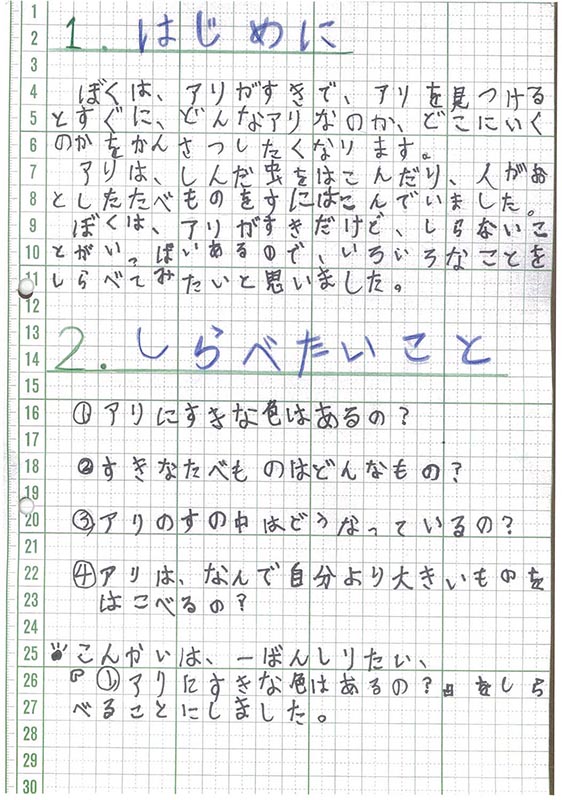 1. はじめに
ぼくは、アリがすきで、アリを見つける
とすぐに、どんなアリなのか、どこにいく
のかをかんさつしたくなります。
アリは、しんだ虫をはこんだり、人がお
としたたべものをすにはこんでいました。
ぼくは、アリがすきだけど、しらないこ
とがいっぱいあるので、いろいろなことを
しらべてみたいと思いました。
2. しらべたいこと
①アリにすきな色はあるの?
②すきなたべものはどんなもの?
③アリのすの中はどうなっているの?
④アリは、なんで自分より大きいものを
はこべるの?
こんかいは、一ばんしりたい、
『①アリにすきな色はあるの?』をしら
べることにしました。
1
2
3
4
5
6
7
8
9
10
11
12
13
14
15
16
17
18
19
20
21
22
23
24
25
26
27
28
29
30